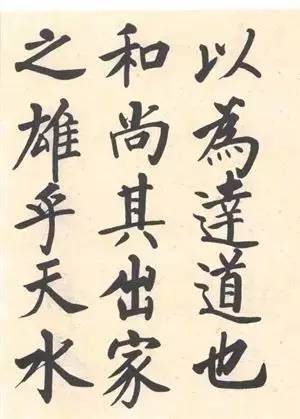 以為達道也
和尚其出家
之雄乎天水